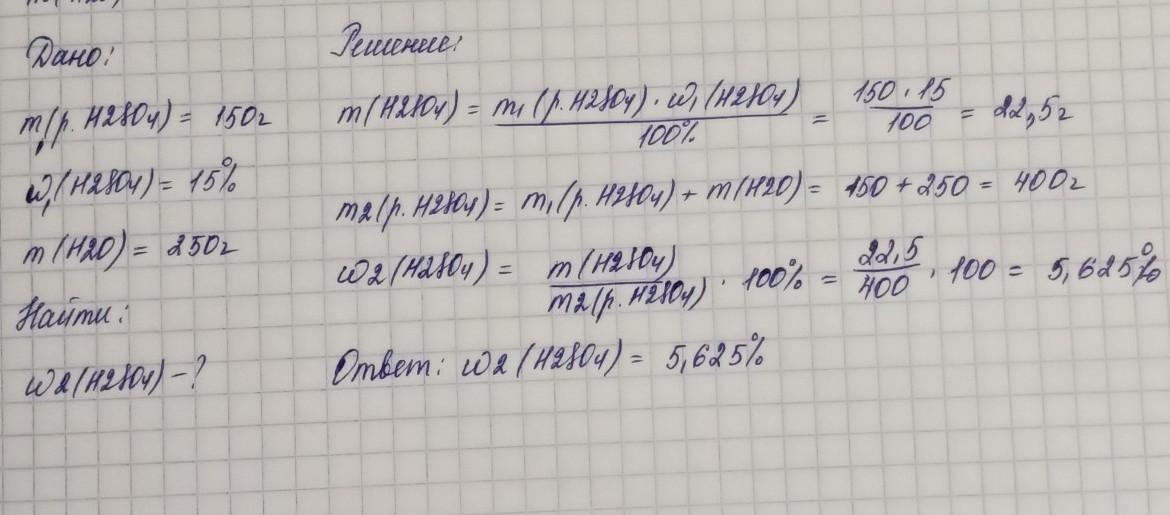 Дано:
m₁(р. H2SO4) = 150г
ω₁(H2SO4) = 15%
m(H2O) = 250г
Найти:
ω2(H2SO4) - ?
Решение:
m(H2SO4) = m₁(р. H2SO4) · ω₁(H2SO4) / 100% = 150 · 15 / 100 = 22,5г
m2(р. H2SO4) = m₁(р. H2SO4) + m(H2O) = 150 + 250 = 400г
ω2(H2SO4) = m(H2SO4) / m2(р. H2SO4) · 100% = 22,5 / 400 · 100 = 5,625%
Ответ: ω2(H2SO4) = 5,625%